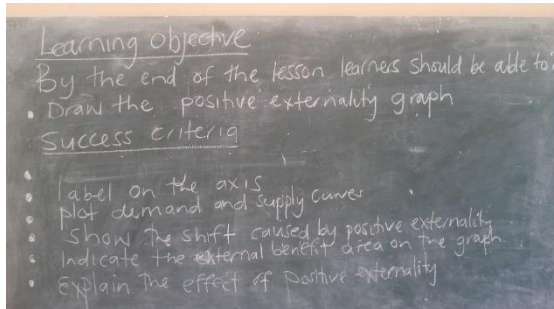 Learning objective
By the end of the lesson learners should be able to:
• Draw the positive externality graph
Success criteria
• label on the axis
• plot demand and supply curves
• Show the shift caused by positive externality
• Indicate the external benefit area on the graph
• Explain the effect of positive externality